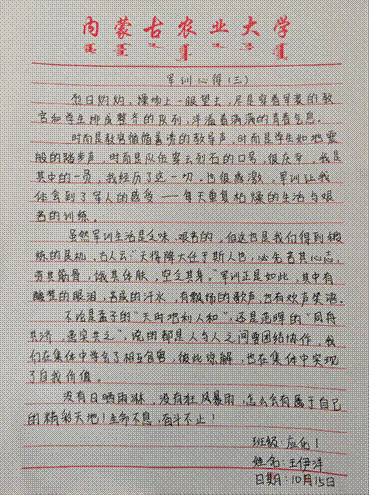 内蒙古农业大学
军训心得(三)
烈日灼灼,操场上一眼望去,尽是穿着军装的教
官和学生排成整齐的队列,洋溢着满满的青春气息。
时而是教官循循善诱的教导声,时而是学生如地震
般的踏步声,时而是队伍穿云裂石的口号,很庆幸,我是
其中的一员,我经历了这一切,也很感激,军训让我
体会到了军人的感受——每天重复枯燥的生活与艰
苦的训练。
虽然军训生活是乏味、艰苦的,但这也是我们得到锻
炼的良机,古人云“天将降大任于斯人也,必先苦其心志,
劳其筋骨,饿其体肤,空乏其身。”军训正是如此,其中有
酸涩的眼泪,苦咸的汗水,有飘扬的歌声,也有欢声笑语。
不论是孟子的“天时地利人和”,还是范晔的“同舟
共济,患实共之”,说的都是人与人之间要团结协作,我
们在集体中学会了相互包容,彼此谅解,也在集体中实现
了自我价值。
没有日晒雨淋,没有狂风暴雨,怎么会有属于自己
的精彩天地!生命不息,奋斗不止!
班级:应化1
姓名:王伊洋
日期:10月15日